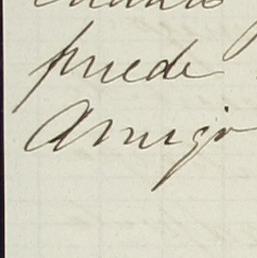 puede
Amigo